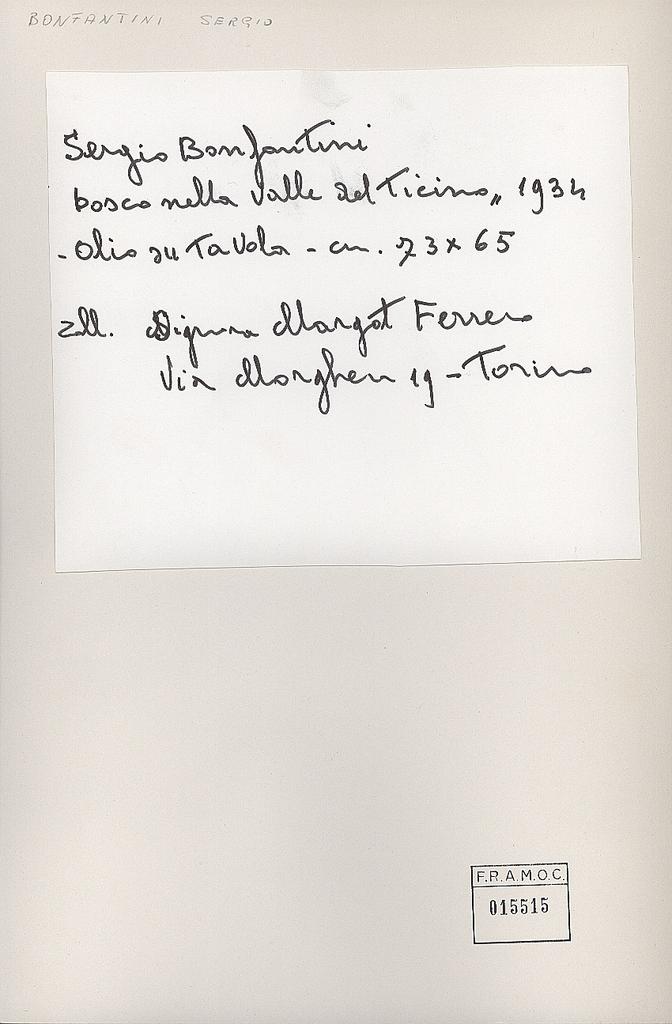 BONFANTINI SERGIO
Sergio Bonfantini
bosco nella Valle del Ticino,, 1934
- olio su tavola - cm. 73 x 65
Signora Margot Ferrero
Via Morghen 19 - Torino
F.R.A.M.O.C.
015515